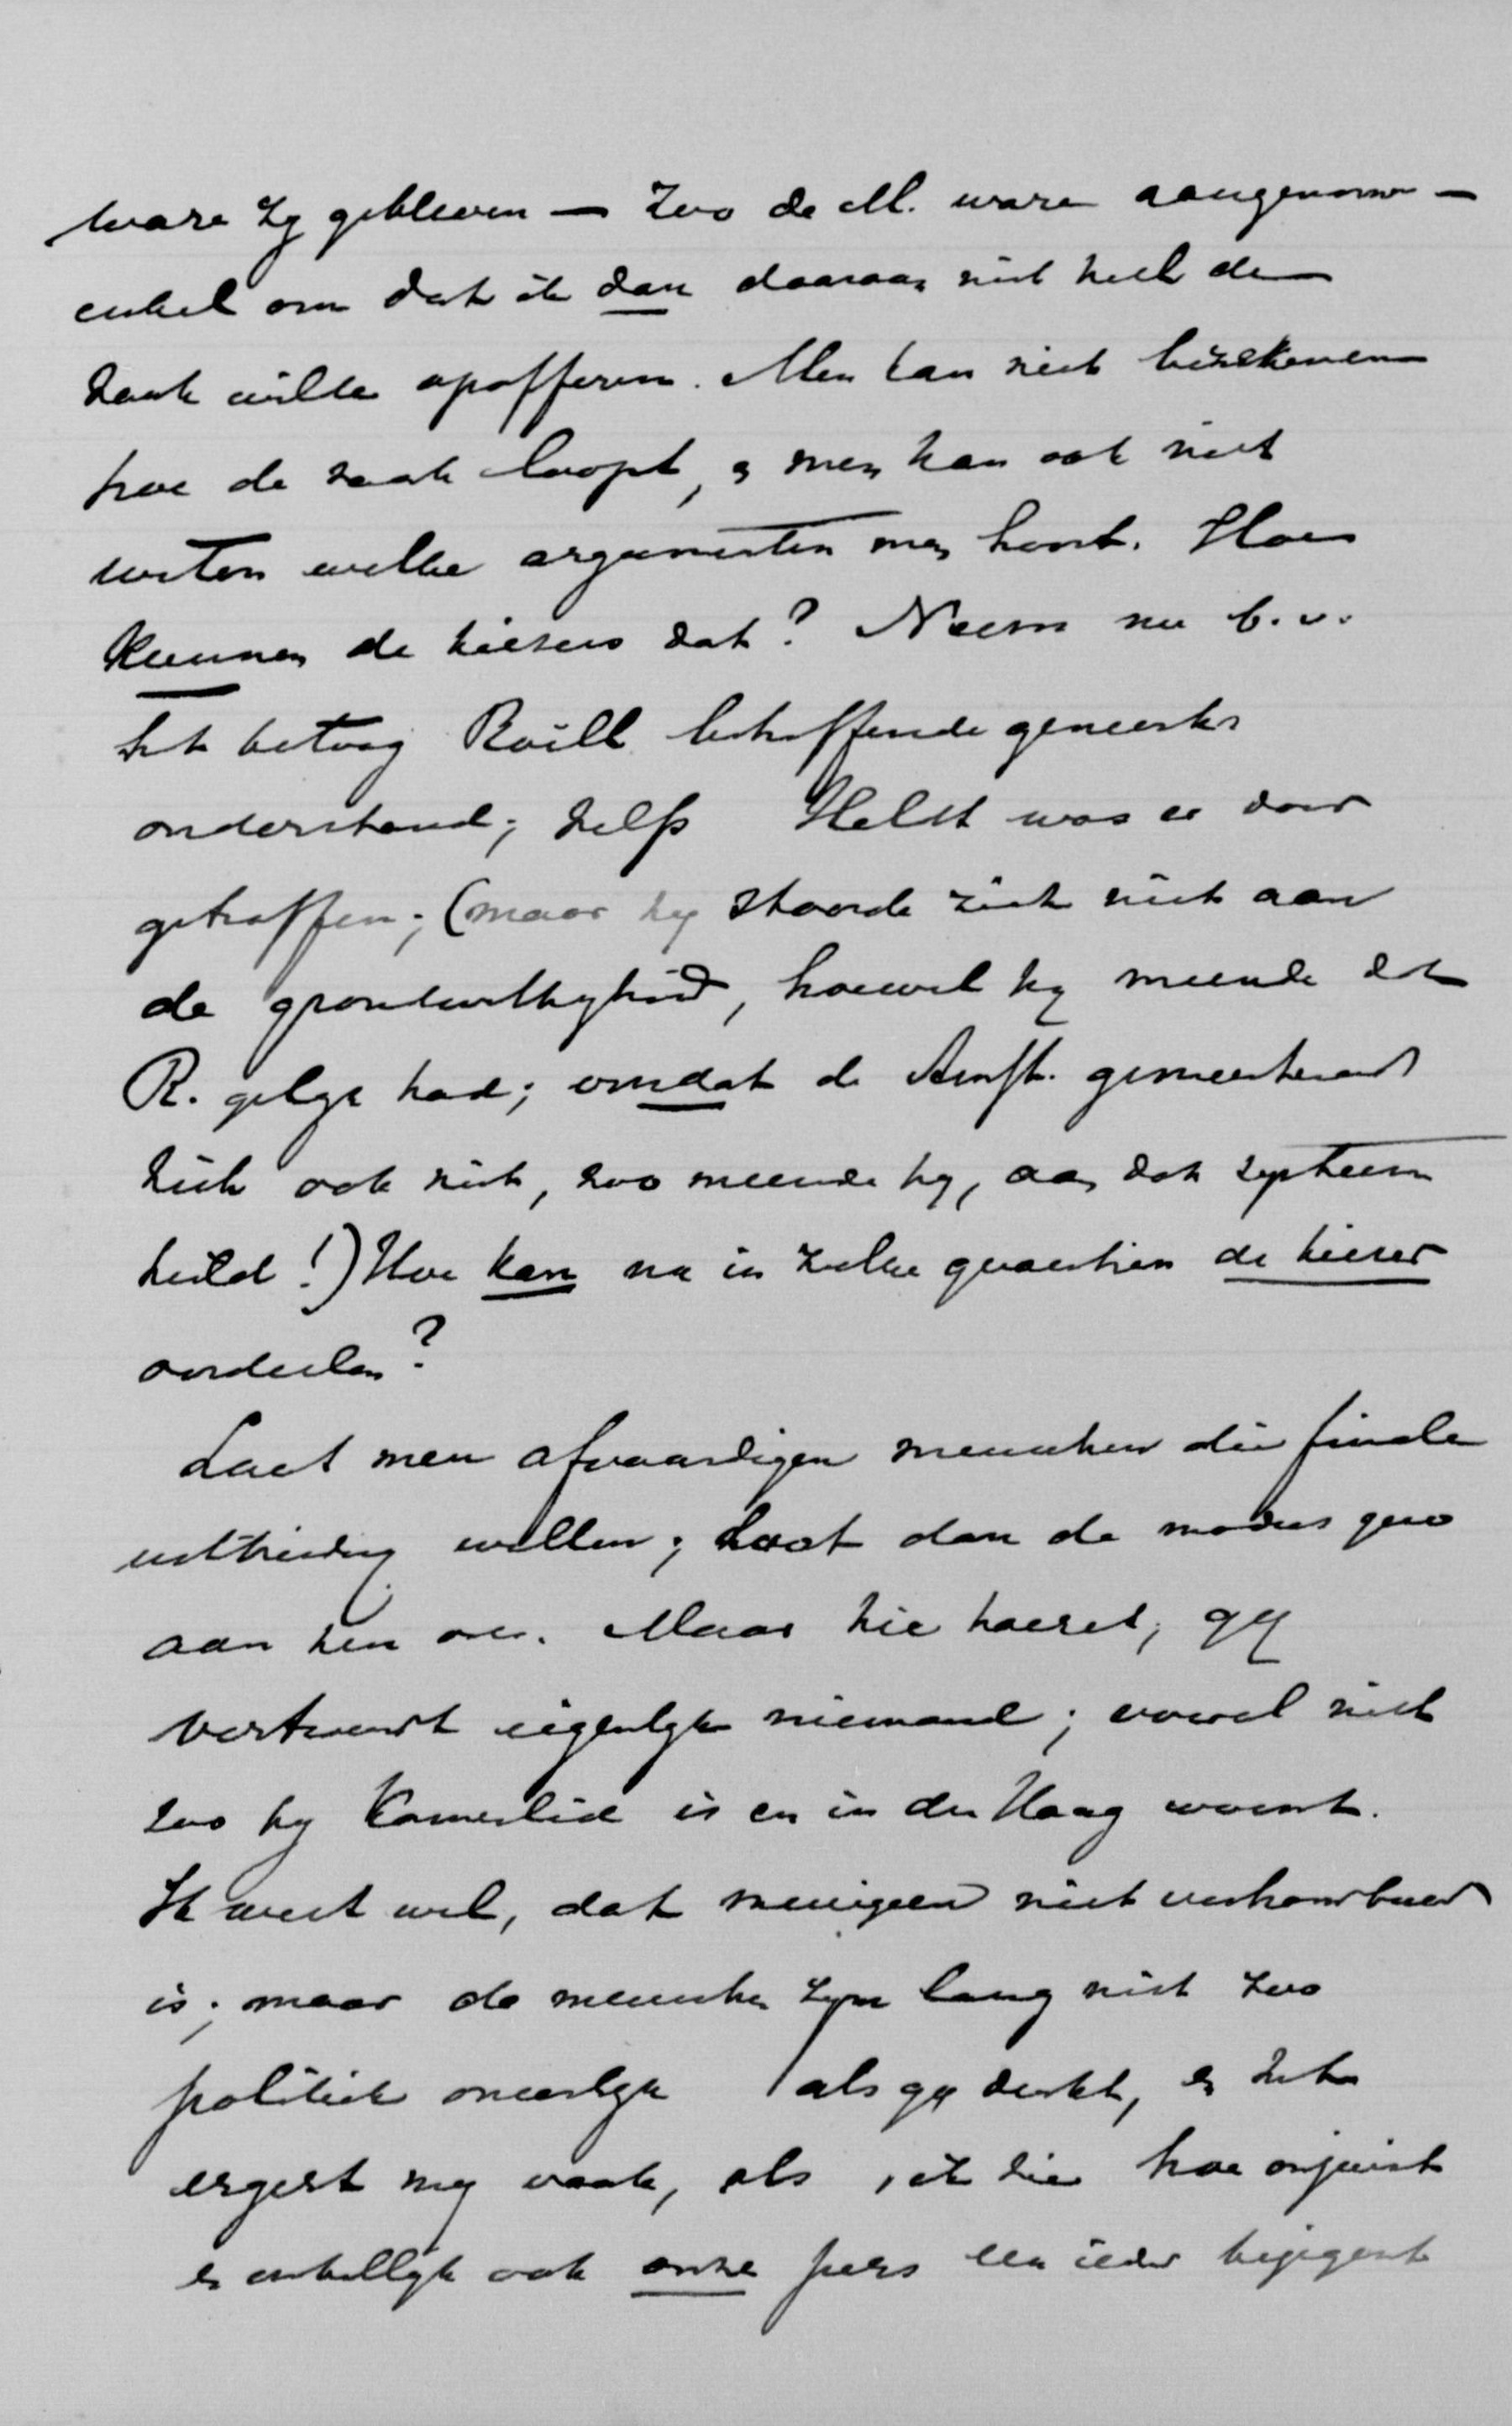 ware zy gebleven — zoo de M. ware aangenomen —
enkel om dat ik dan daaraan niet heel de
zaak wilde opofferen. Men kan niet berekenen
hoe de zaak loopt, en men kan ook niet
weten welke argumenten men hoort. Hoe
kunnen de kiezers dat? Neem nu b.v.
het betoog Roëll betreffende gemeente
onderstand; zelfs Heldt was er door
getroffen; (maar hy stoorde zich niet aan
de grondwettigheid, hoewel hy meende dat
R. gelyk had; omdat de Amst. gemeenteraad
zich ook niet, zoo meende hy, aan dat systeem
hield!) Hoe kan nu in zulke quaestien de kiezer
oordeelen?
Laat men afvaardigen menschen die finale
uitbreiding willen; laat dan de modus quo
aan hen over. Maar hic haeret; gy
vertrouwt eigenlyk niemand; vooral niet
zoo hy Kamerlid is en in den Haag woont.
Ik weet wel, dat menigeen niet vertrouwbaar
is; maar de menschen zyn lang niet zoo
politiek oneerlyk als gy denkt, en het
ergert my vaak, als ik zie hoe onjuist
en onbillyk ook onze pers een ieder bejegent